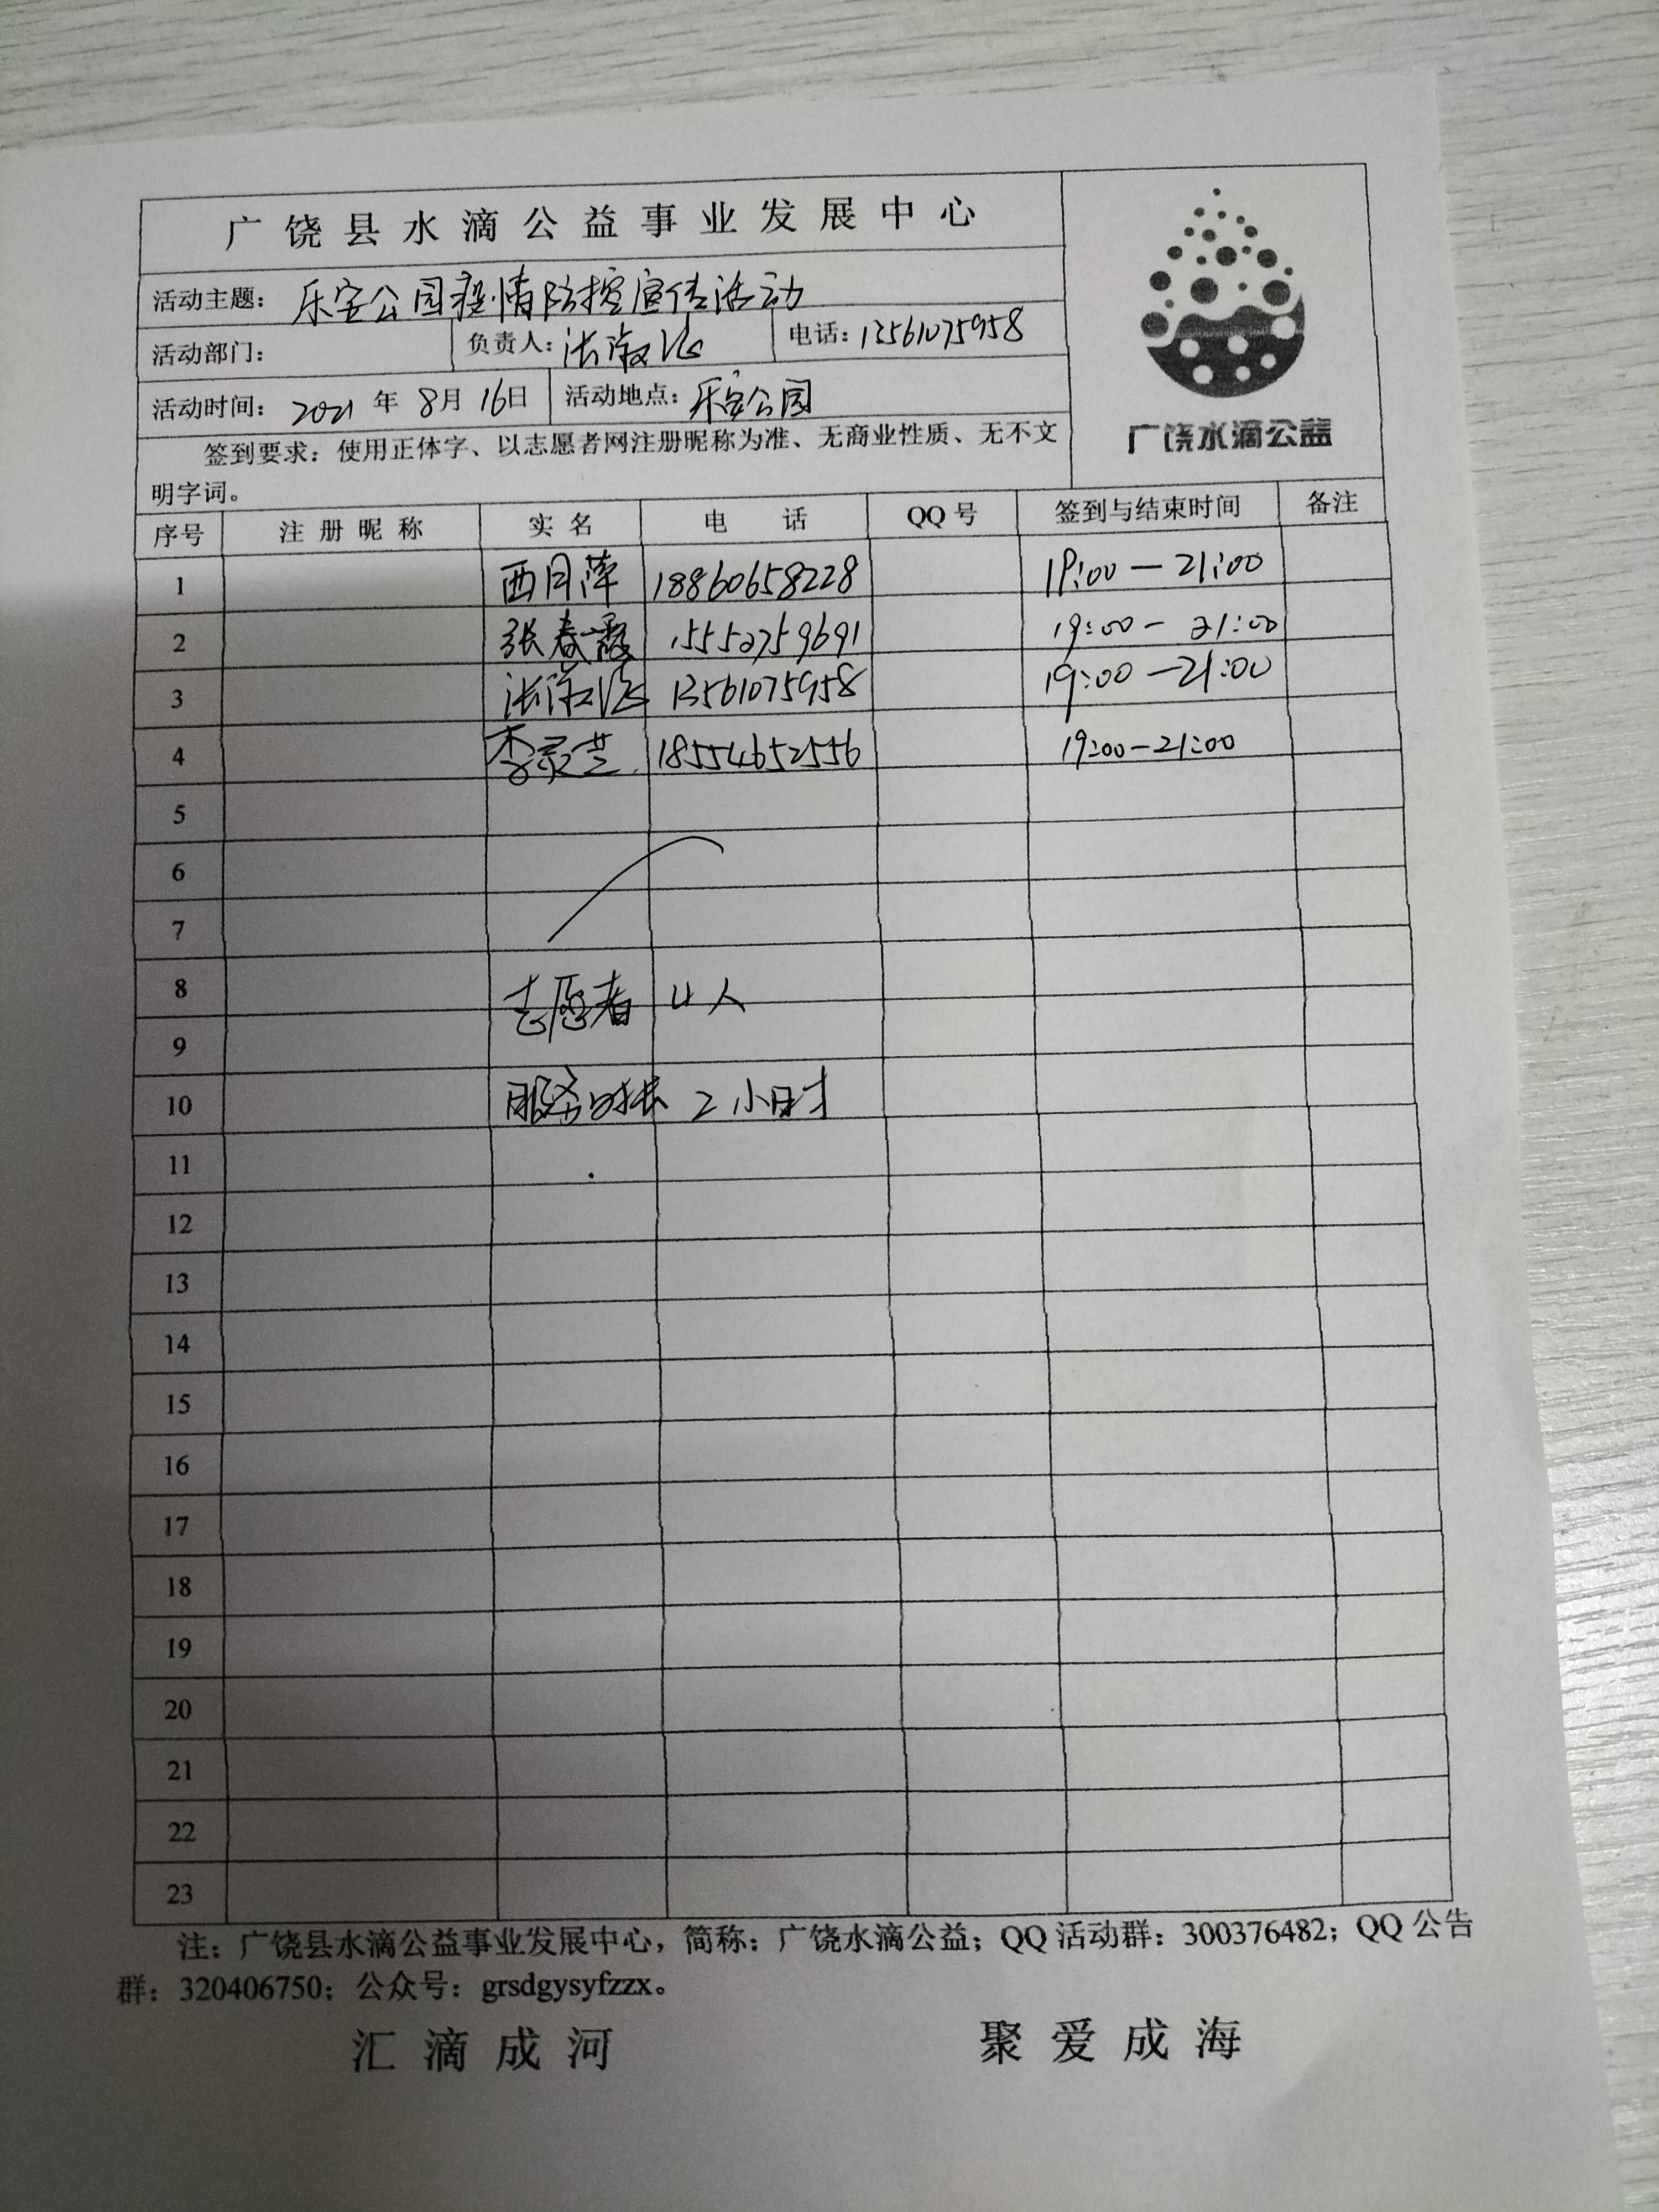 广饶县水滴公益事业发展中心
活动主题： 乐安公园疫情防控宣传活动
活动部门： 负责人： 电话：13561075958
活动时间： 2021 年 8月 16日 活动地点： 乐安公园
签到要求：使用正体字、以志愿者网注册昵称为准、无商业性质、无不文
明字词。
广饶水滴公益
序号 注册昵称 实名 电话 QQ号 签到与结束时间 备注
1 西月萍 18860658228 19:00—21:00
2 张春霞 15552759691 19:00-21:00
3 13561075958 19:00—21:00
4 李灵芝 18554652556 19:00-21:00
5
6
7
8 志愿者 4人
9
10 服务时长 2小时
11
12
13
14
15
16
17
18
19
20
21
22
23
注：广饶县水滴公益事业发展中心，简称：广饶水滴公益；QQ 活动群：300376482；QQ 公告
群：320406750；公众号：grsdgysyfzzx。
汇滴成河 聚爱成海